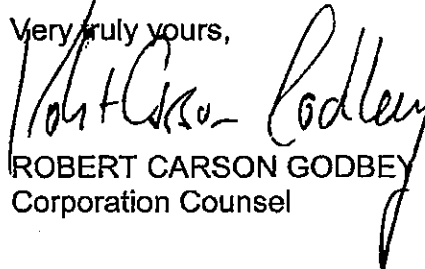 Very truly yours,
Robert Carson Godbey
ROBERT CARSON GODBEY
Corporation Counsel